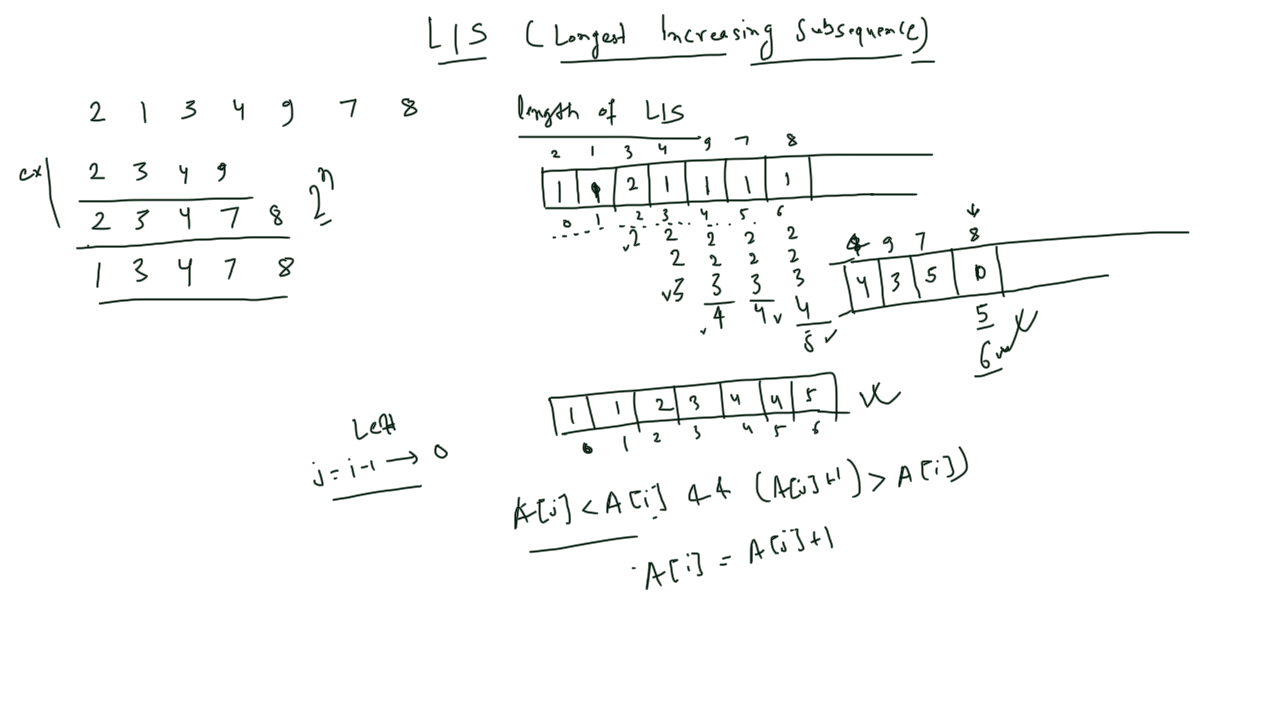 LIS (Longest Increasing Subsequence)
2 1 3 4 9 7 8
ex
2 3 4 9
2 3 4 7 8
2^n
1 3 4 7 8
length of LIS
2 1 3 4 9 7 8
1 1 2 1 1 1 1
0 1 2 3 4 5 6
2 2 2 2 2
2 2 2 2
3 3 3 3
4 4 4
5
9 7 8
4 3 5 0
5
6
1 1 2 3 4 4 5
0 1 2 3 4 5 6
Left
j = i-1 → 0
A[j] < A[i] && (A[j]+1) > A[i])
A[i] = A[j]+1